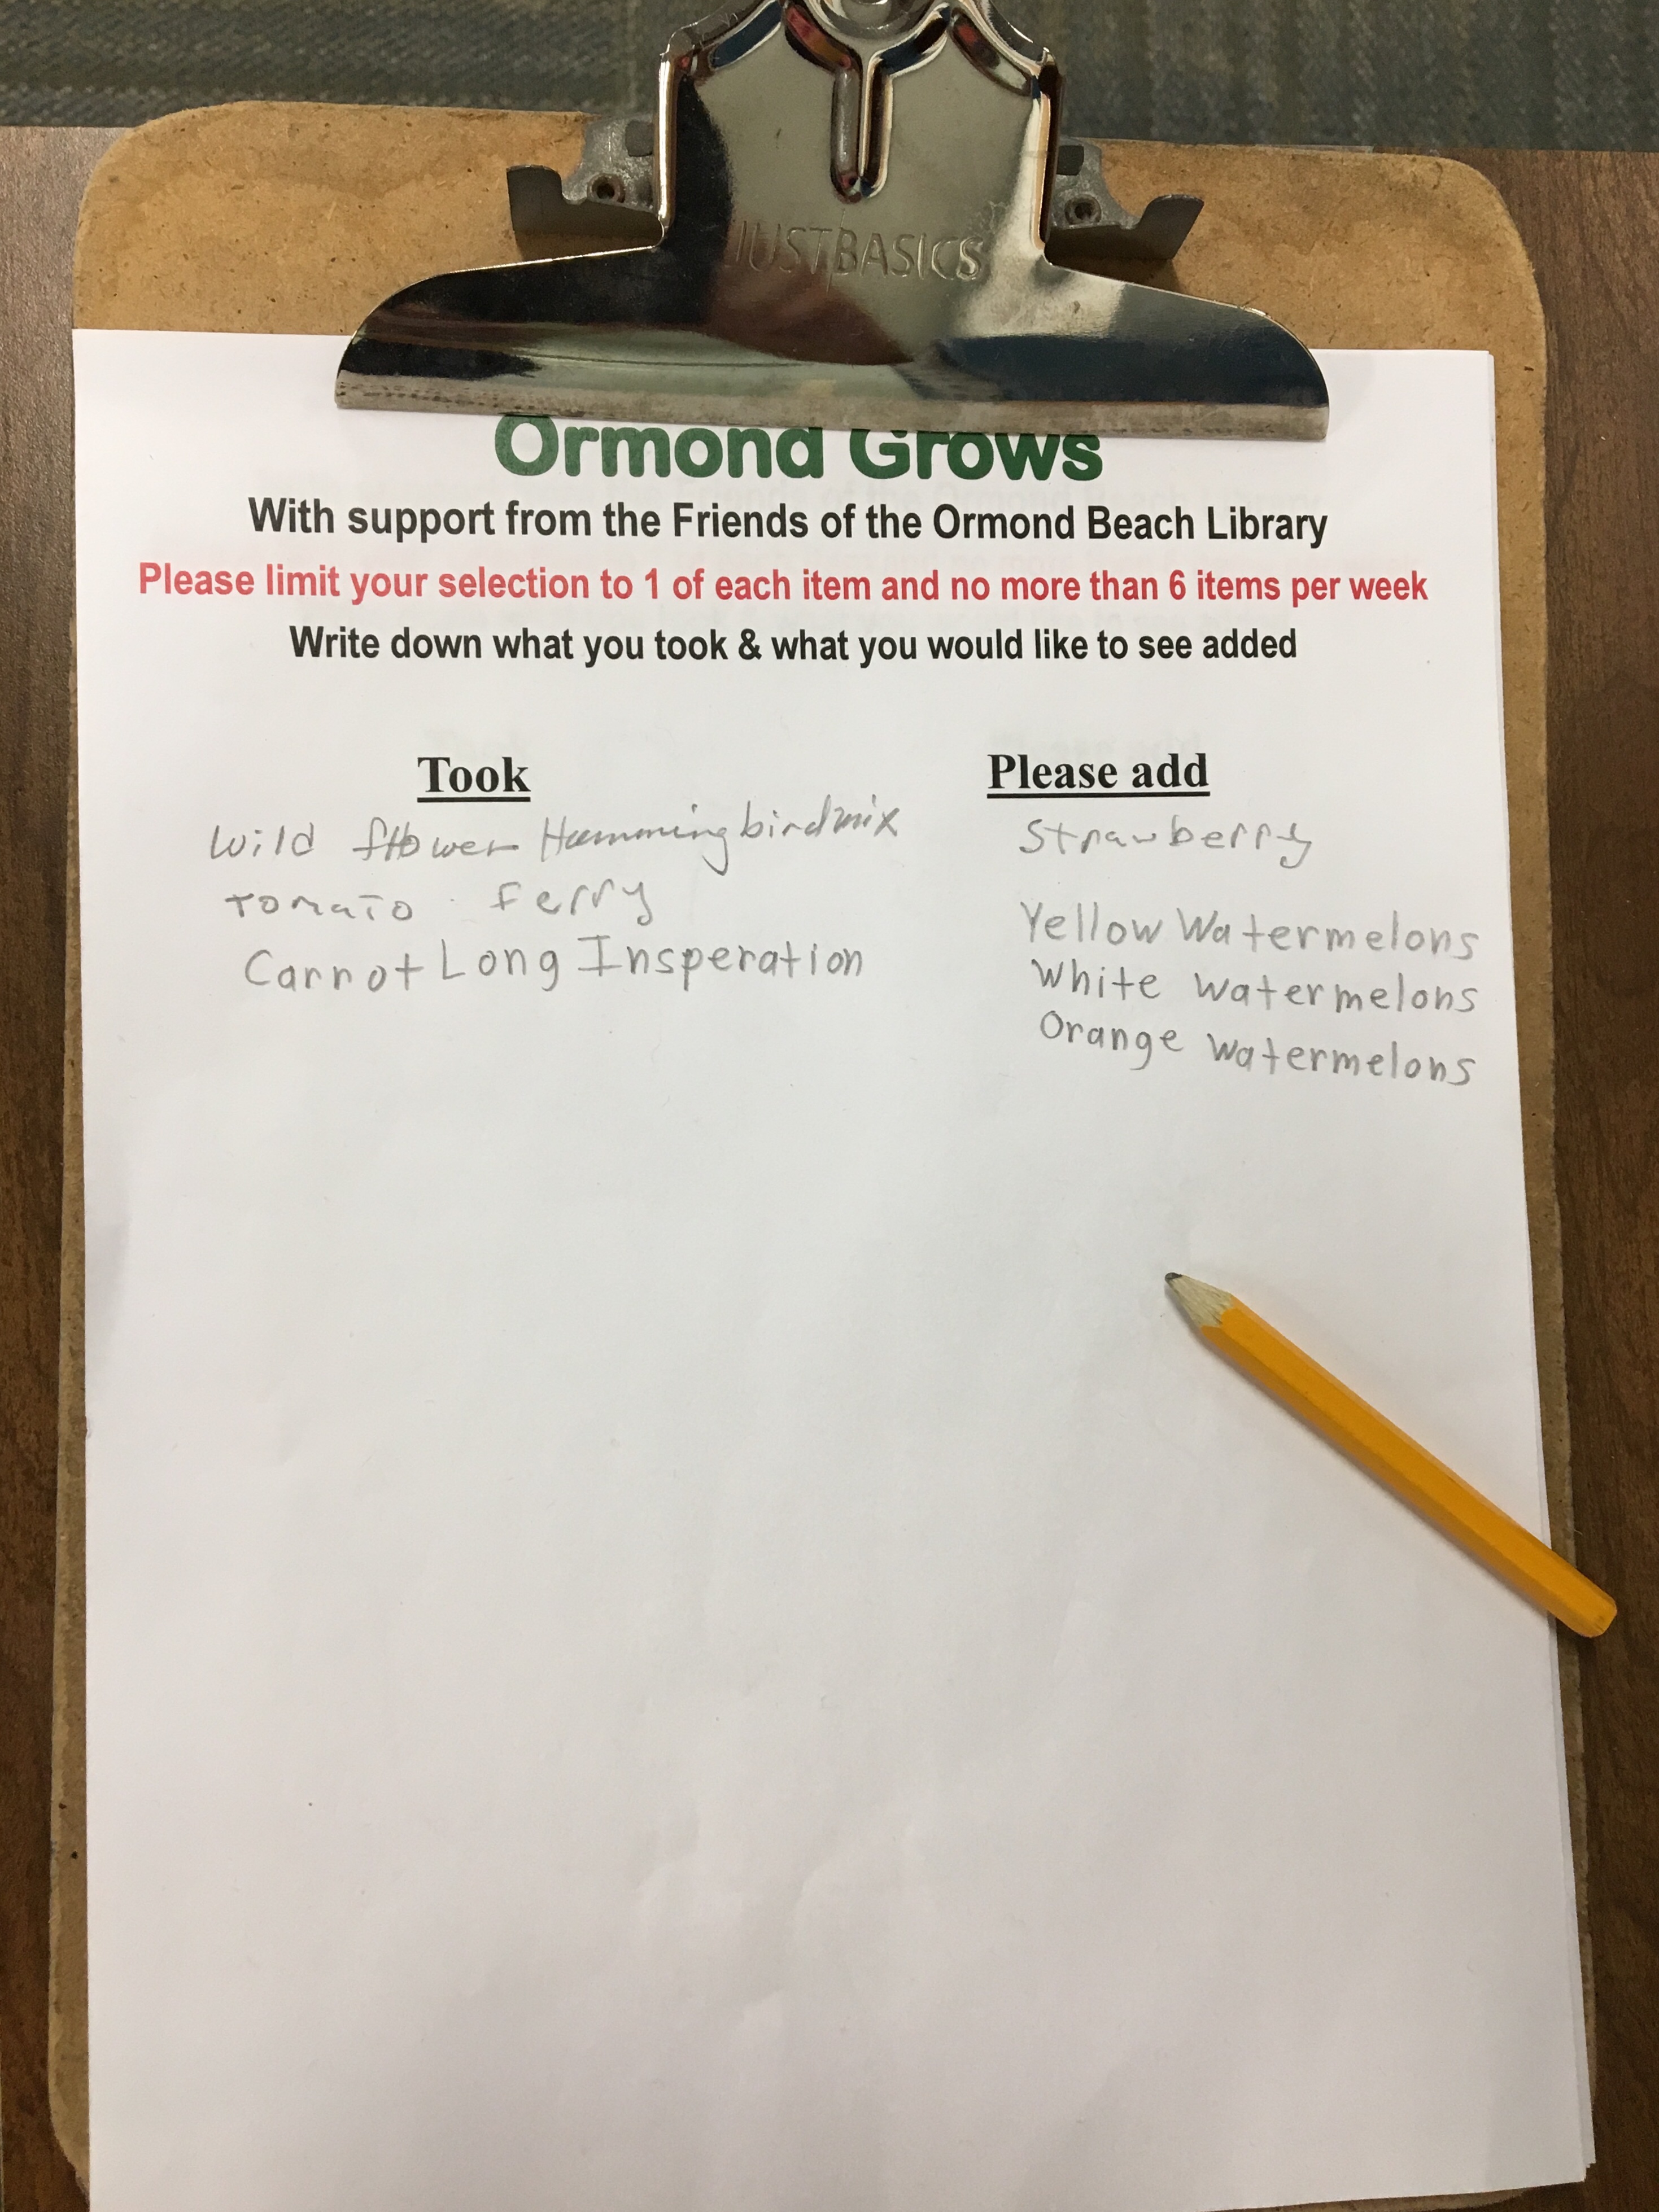 JUSTBASICS
Ormond Grows
With support from the Friends of the Ormond Beach Library
Please limit your selection to 1 of each item and no more than 6 items per week
Write down what you took & what you would like to see added
Took
Please add
Wild flower Hummingbird mix
Strawberry
Tomato Ferry
Yellow Watermelons
Carrot Long Insperation
White Watermelons
Orange Watermelons